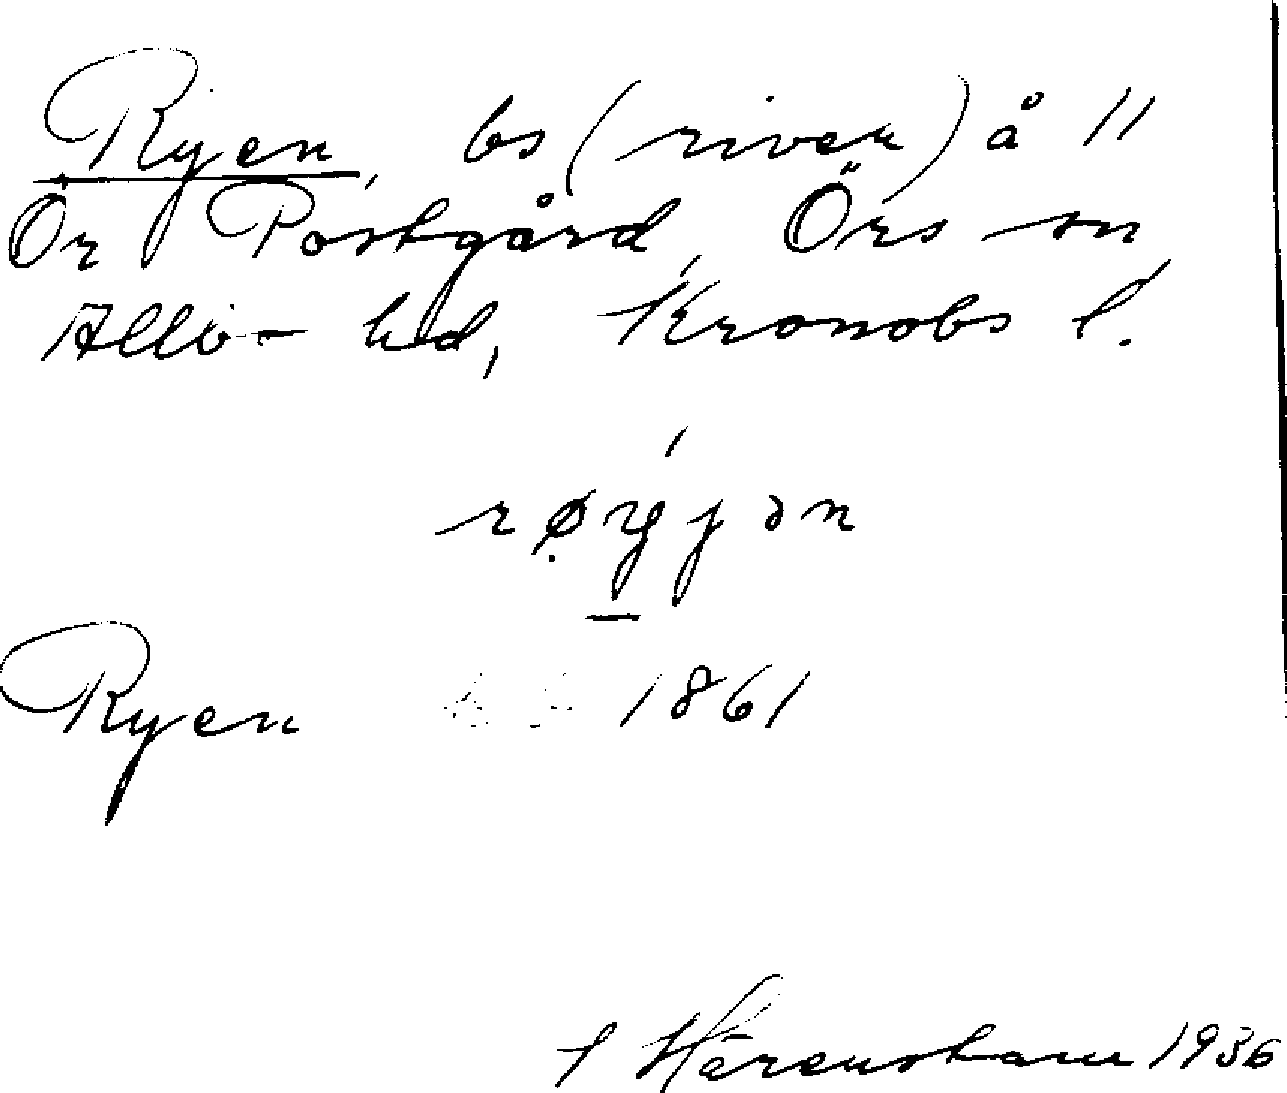 Ryen, bs (river) å 11
Ör Postgård, Örs sn
Allbo hd, Kronobs l.
røyjən
Ryen 1861
1936